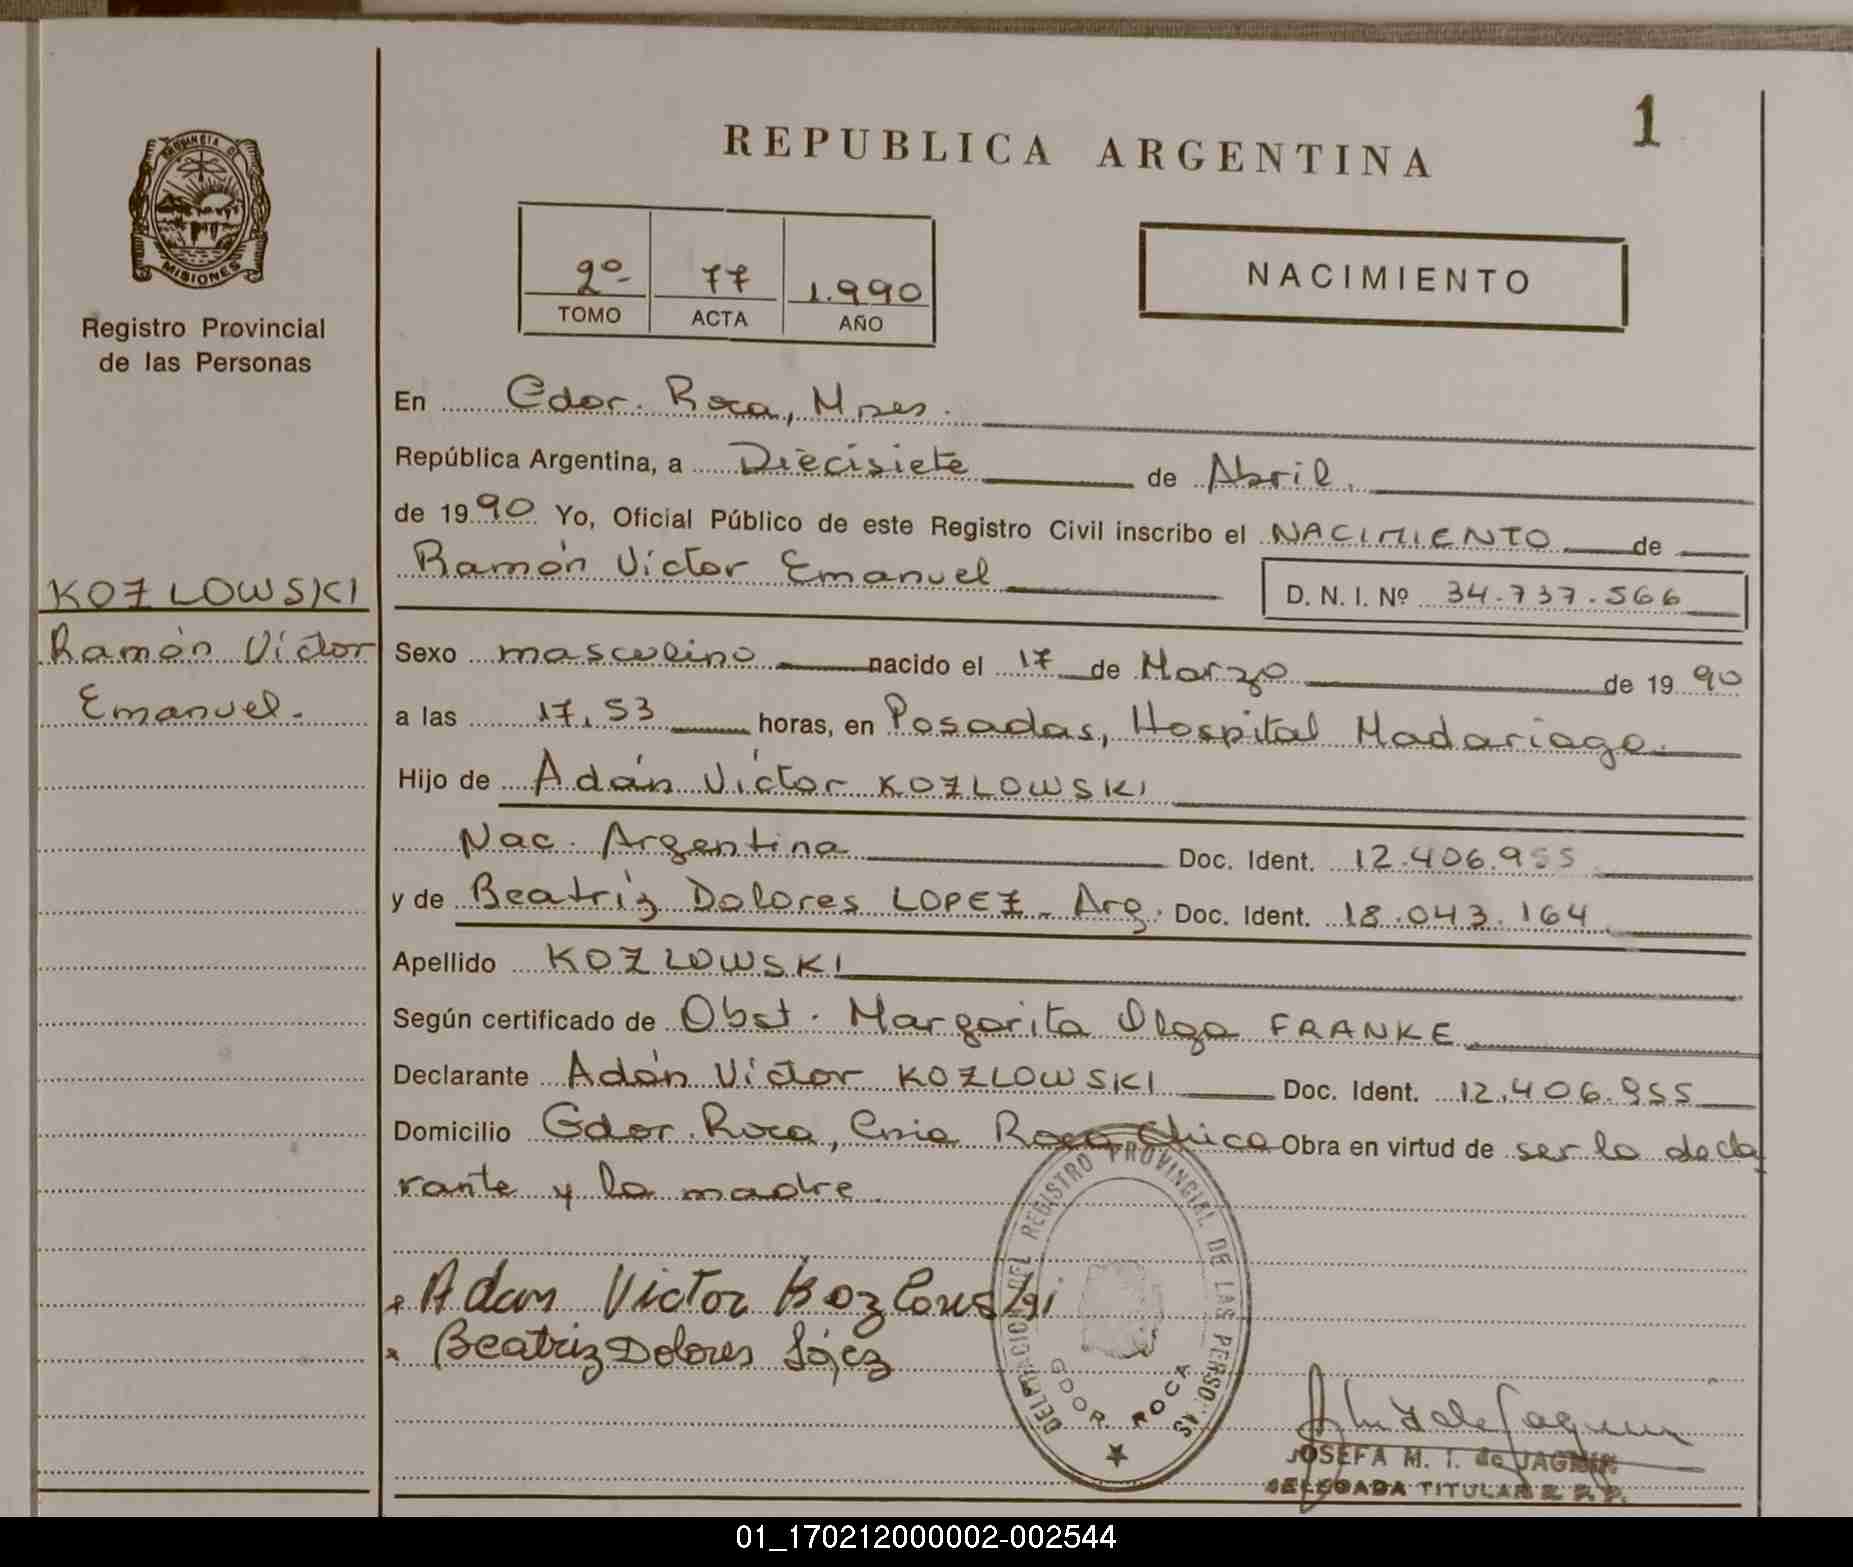 1
REPUBLICA ARGENTINA
PROVINCIA DE
MISIONES
Registro Provincial
de las Personas
2º 77 1.990
TOMO ACTA AÑO
NACIMIENTO
En Gdor. Roca, Mnes.
República Argentina, a Diecisiete de Abril.
de 1990 Yo, Oficial Público de este Registro Civil inscribo el NACIMIENTO de
Ramón Víctor Emanuel D. N. I. Nº 34.737.566
KOZLOWSKI
Ramón Víctor
Emanuel.
Sexo masculino nacido el 17 de Marzo de 1990
a las 17,53 horas, en Posadas, Hospital Madariaga.
Hijo de Adán Víctor KOZLOWSKI
Nac. Argentina Doc. Ident. 12.406.955
y de Beatriz Dolores LOPEZ - Arg. Doc. Ident. 18.043.164
Apellido KOZLOWSKI
Según certificado de Obst. Margarita Olga FRANKE
Declarante Adán Víctor KOZLOWSKI Doc. Ident. 12.406.955
Domicilio Gdor. Roca, Roca Chica Obra en virtud de ser lo decla
rante y la madre
Adan Victor Kozlowski
Beatriz Dolores López
DELEGACION DEL REGISTRO PROVINCIAL DE LAS PERSONAS
GDOR. ROCA
JOSEFA M. I. de JAGMIN
DELEGADA TITULAR R. P. P.
01_170212000002-002544